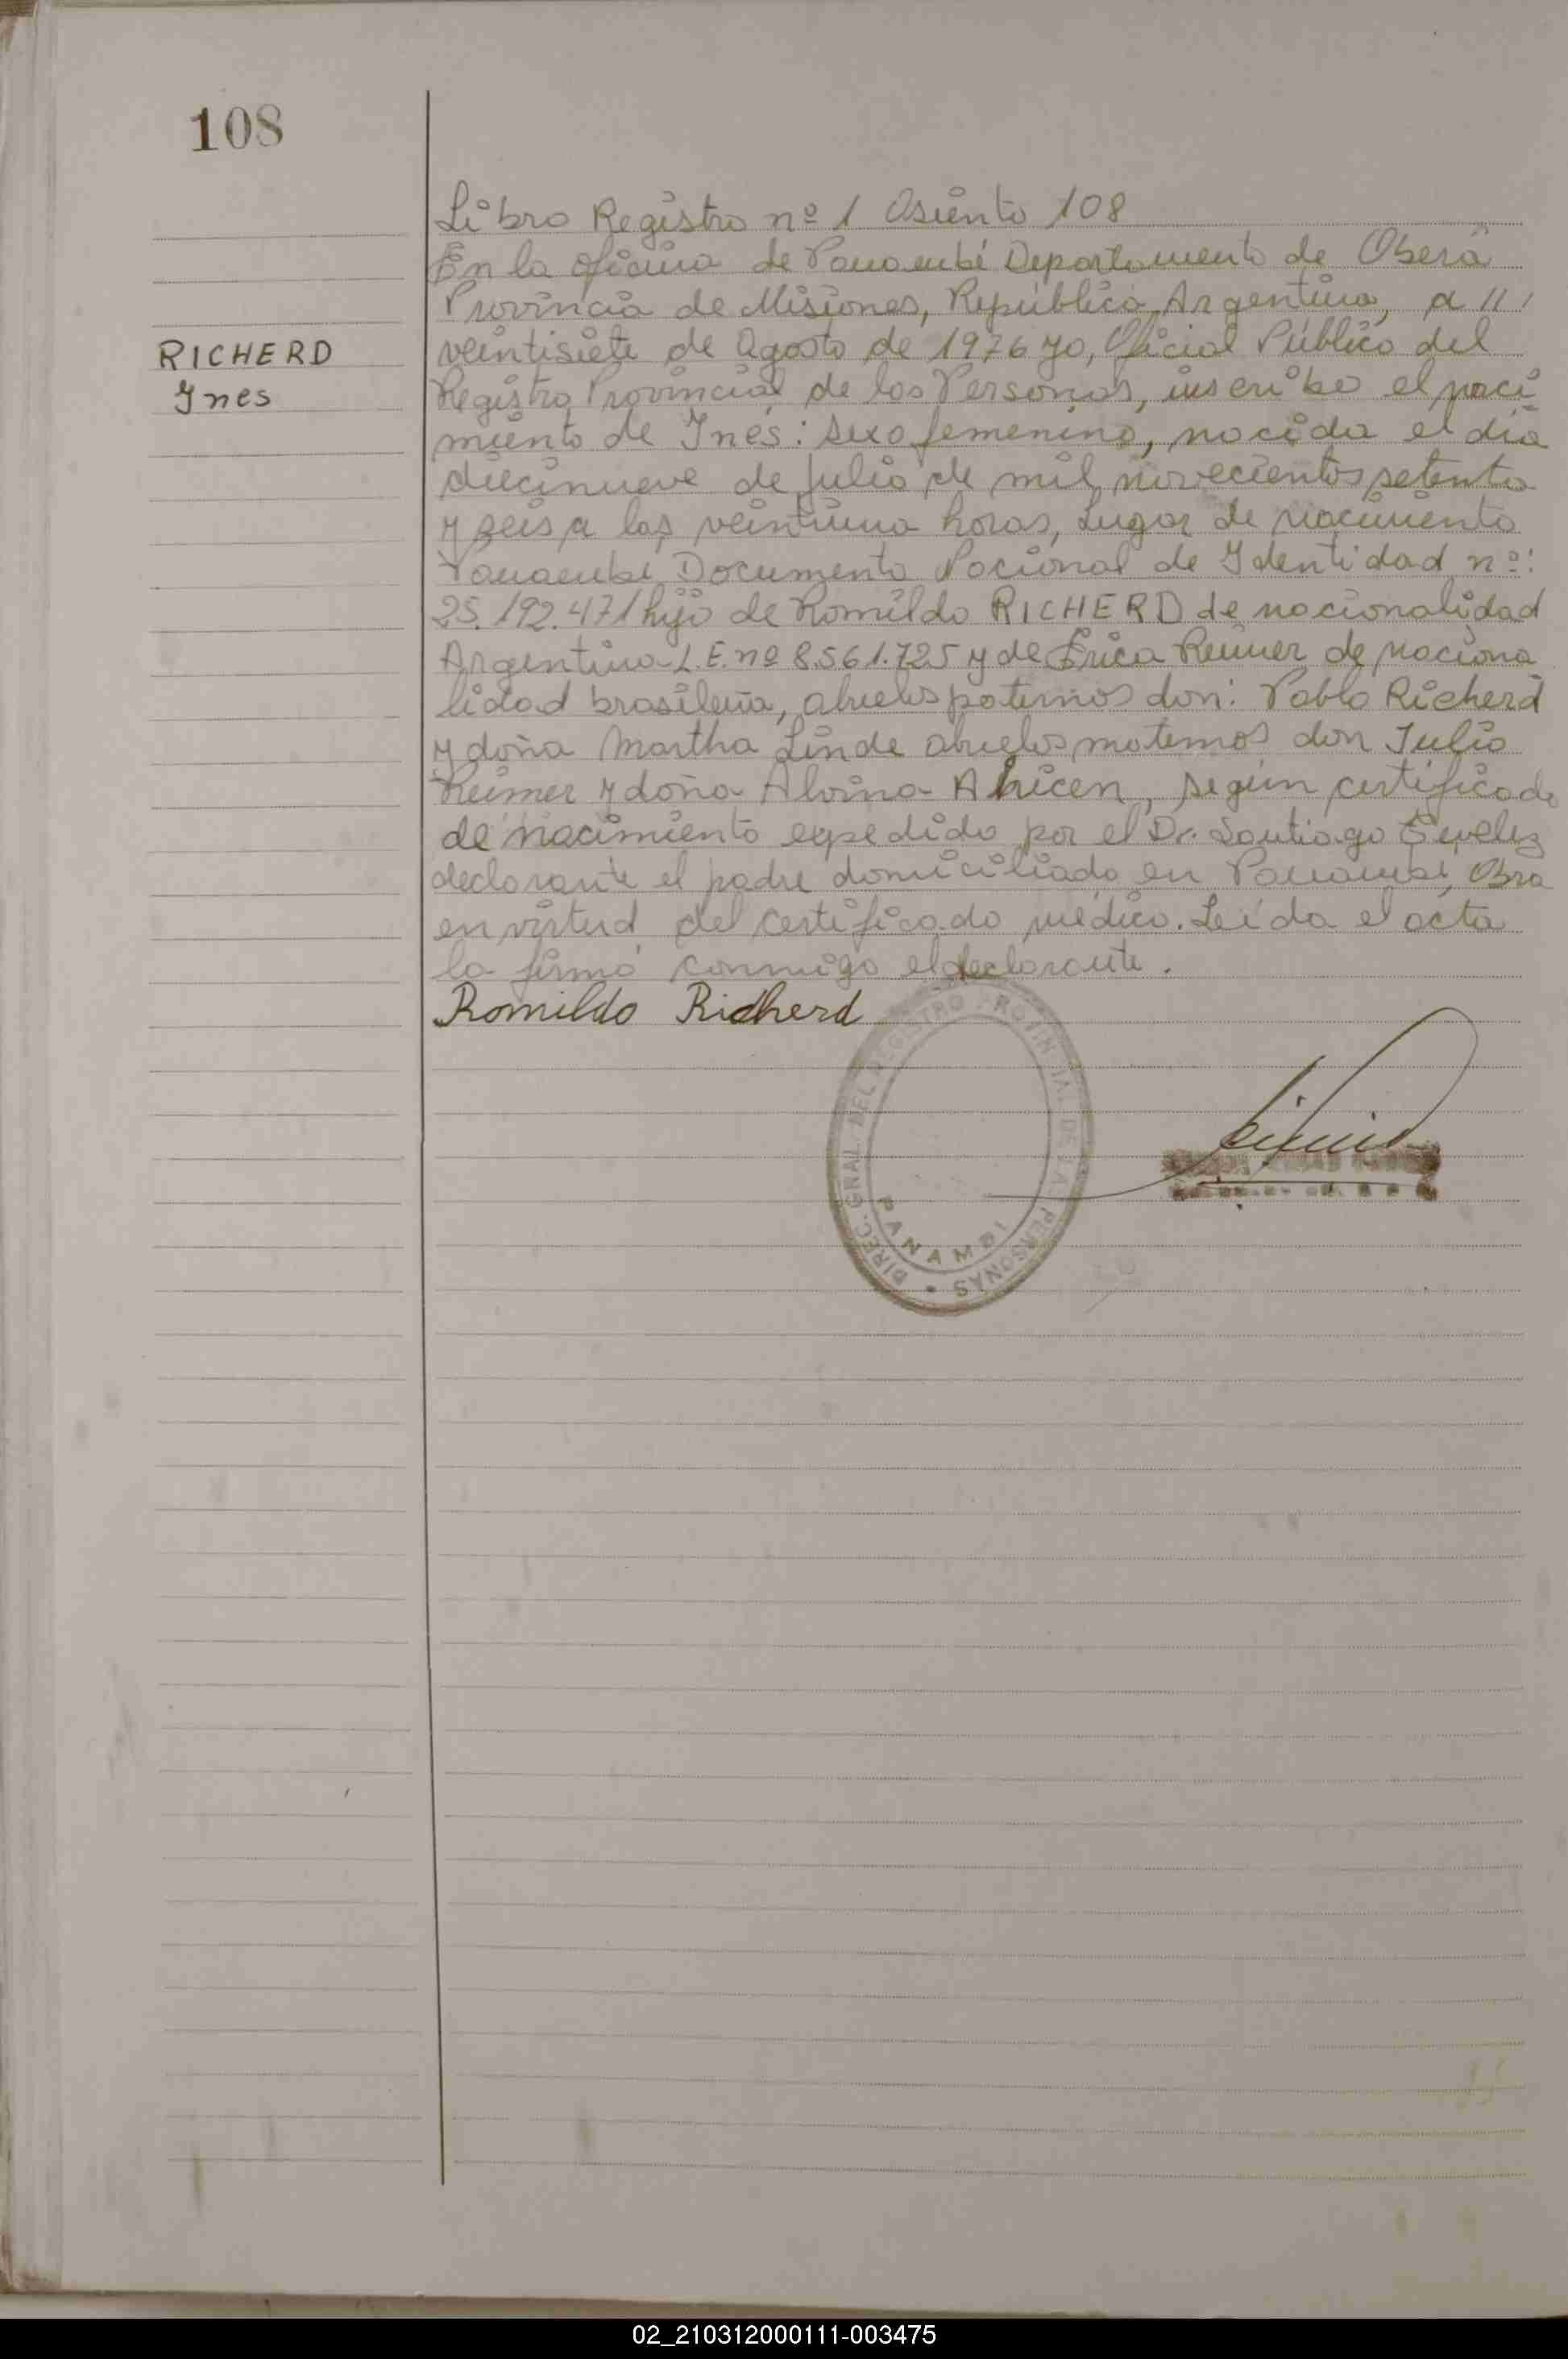 108
Libro Registro nº 1 Asiento 108
En la oficina de Panambí Departamento de Oberá
Provincia de Misiones, República Argentina, a //
RICHERD
Ines
veintisiete de Agosto de 1976 yo, Oficial Público del
Registro Provincial de las Personas, inscribo el naci
miento de Inés: sexo femenino, nacida el día
diecinueve de julio de mil novecientos setenta
y seis a las veintiuna horas, Lugar de nacimiento
Panambí Documento Nacional de Identidad nº:
25.192.471 hijo de Romildo RICHERD de nacionalidad
Argentina L.E. nº 8.561.725 y de Erica Reimer de naciona
lidad brasileña, abuelos paternos don: Pablo Richerd
y doña Martha Linde abuelos maternos don Julio
Reimer y doña Alvina, según certificado
de nacimiento expedido por el Dr. Santiago
declarante el padre domiciliado en Panambí, Obra
en virtud del certificado médico. Leída el acta
la firmó conmigo el declarante.
Romildo Richerd
DIREC. GNAL. DEL REGISTRO PROVINCIAL DE LAS PERSONAS
PANAMBI
02_210312000111-003475